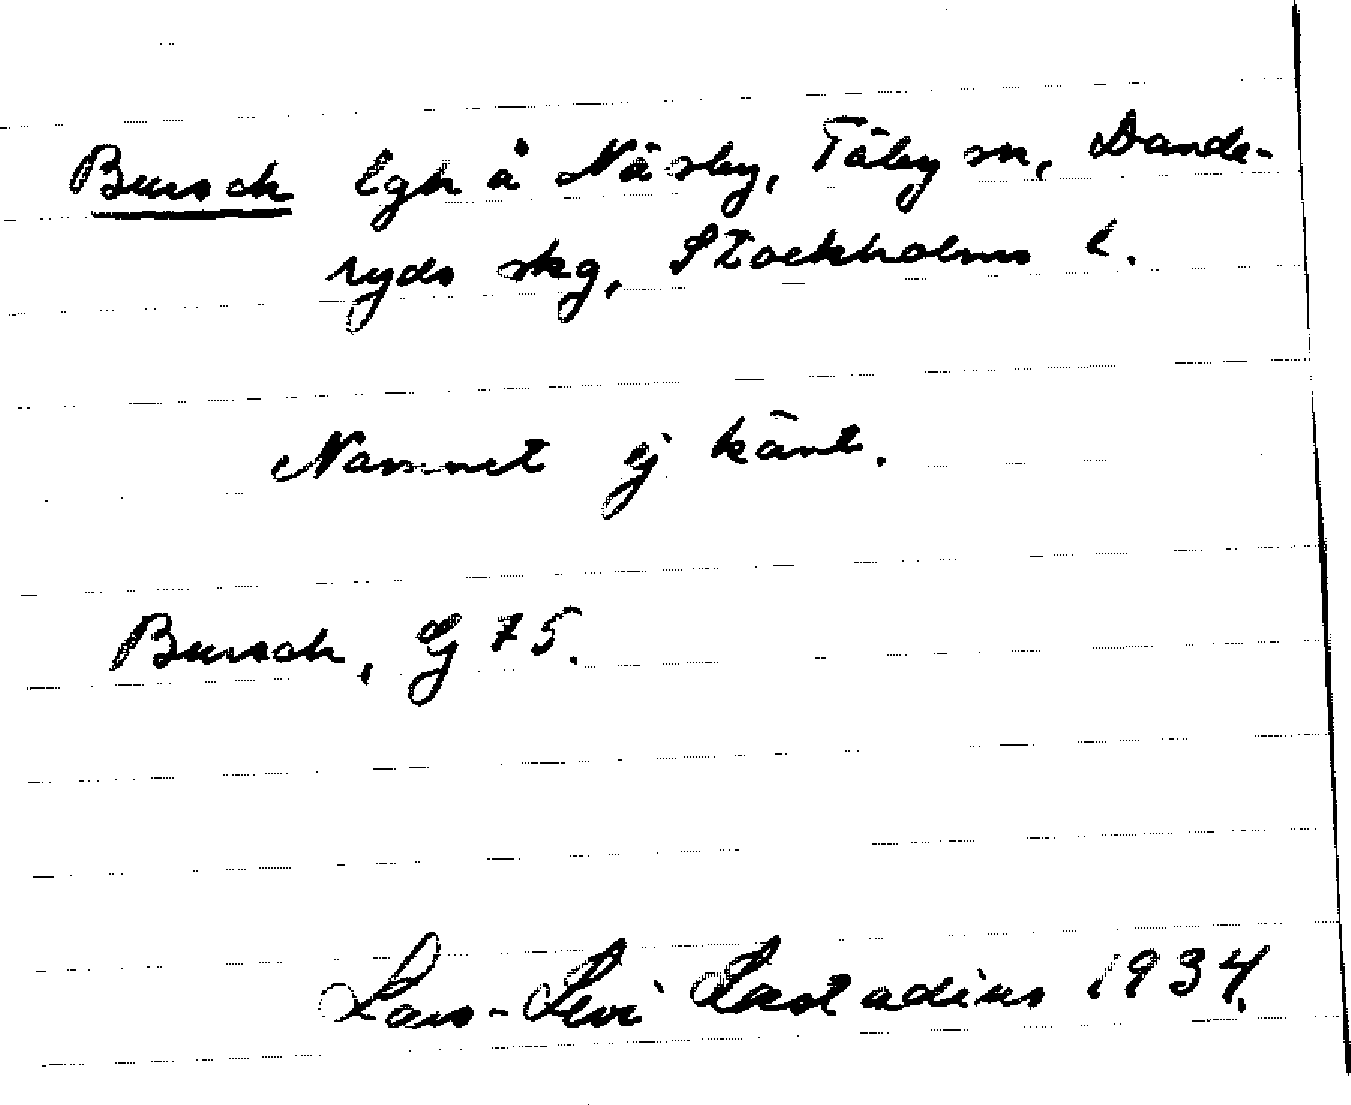 Bursch lgh å Näsby, Täby sn, Dande-
ryds skg, Stockholms l.
Namnet ej känt.
Bursch, Ej 75.
Lars-Levi Læstadius 1934.